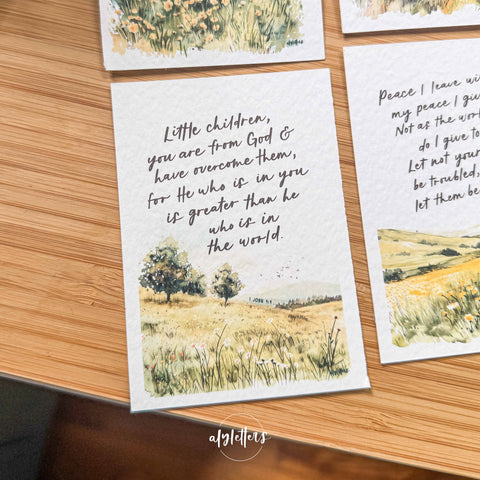 Little children,
you are from God &
have overcome them,
for He who is in you
is greater than he
who is in
the world.
Peace I leave
my peace I
Not as the
do I give to
Let not your
be troubled,
let them be
alyletters